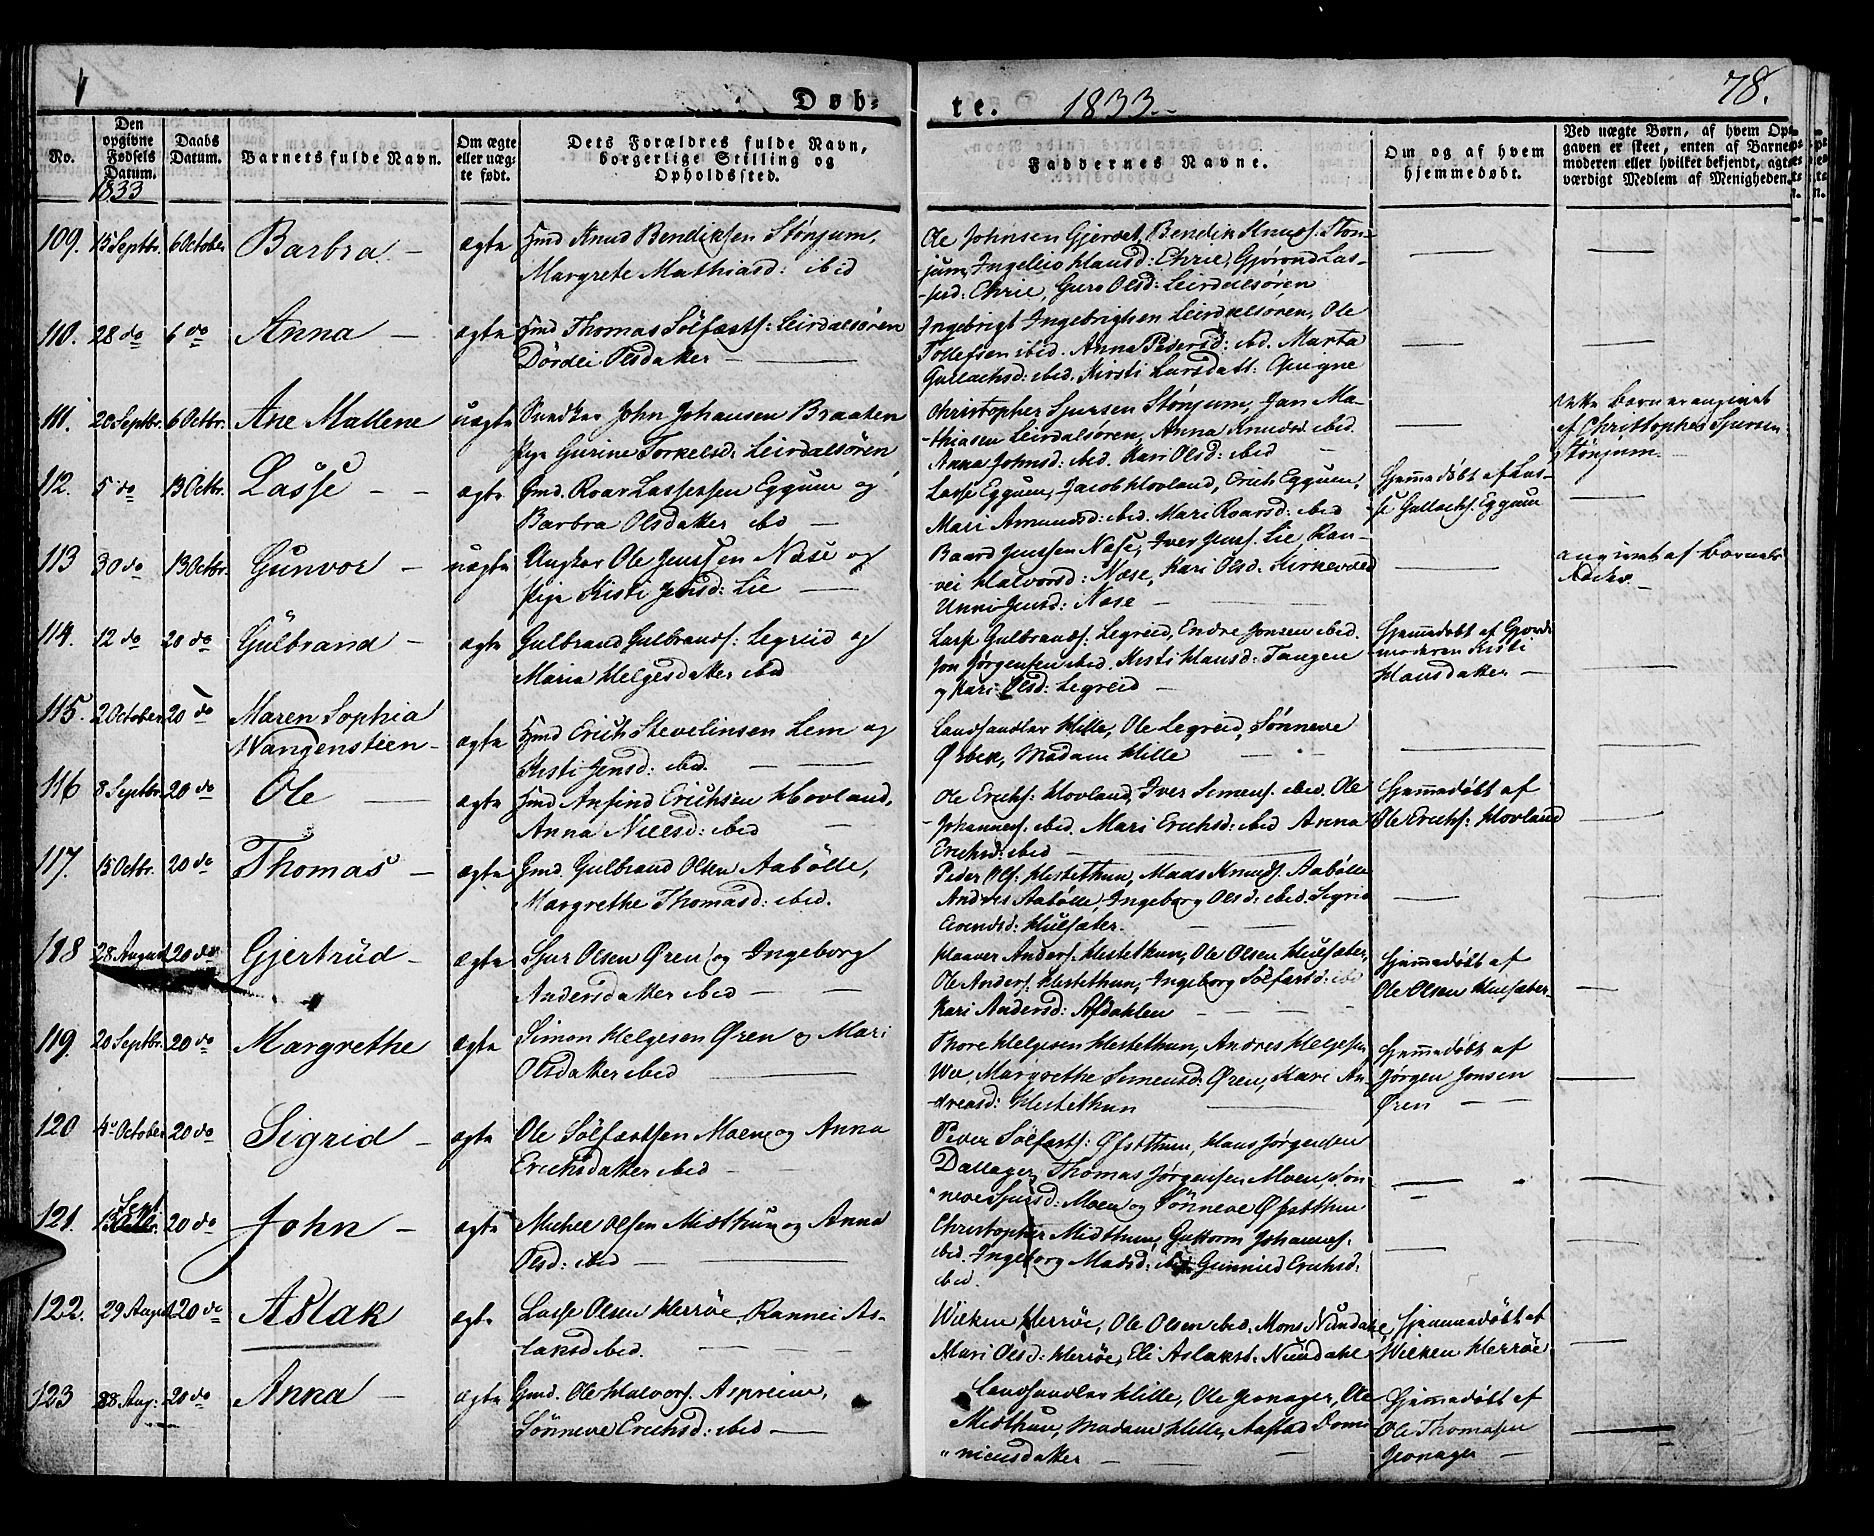 Døb-
te. 1833.
78.
No.
Den opgivne Fødsels Datum.
1833
Daabs Datum.
Barnets fulde Navn.
Om ægte eller uægte født.
Dets Forældres fulde Navn, borgerlige Stilling og Opholdssted.
Faddernes Navne.
Om og af hvem hjemmedøbt.
Ved uægte Børn, af hvem Opgaven er skeet, enten af Barnemoderen eller hvilket bekjendt, agtværdigt Medlem af Menigheden.
109. 15 Septbr. 6 October Barbra. - ægte
Hmd Knud Bendiksen Stønjum,
Margrete Mathiasd: ibid
Ole Johnsen Gjerdet, Bendik Knuds. Støn-
jum, Hansd: Ehrie, Gjørond Las-
sesd: Ehrie, Guro Olsd: Leirdalsøren
110. 28 do 6 do Anna - ægte
Hmd Thomas Sølfæsts: Leirdalsøren
Dordei Olsdatter -
Ingebrigt Ingebrigtsen Leirdalsøren, Ole
Tollefsen ibid. Anna Pedersd: ibd. Marta
Gullachsd: ibid. Kirsti Larsdatt: Qvigne
111. 20 Septbr. 6 Octbr. Ane Mallene uægte
John Johansen Braaten
Pige Gurine Torkelsd: Leirdalsøren
Christopher Sjursen Stønjum, Jan Ma-
thiasen Leirdalsøren, Anna Knudsd ibid.
Anna Johnsd: ibid. Kari Olsd: ibid
Barn er angivet
af Christopher Sjursen
Stønjum.
112. 5 do 13 Octbr. Lasse - - ægte
Gmd. Roar Lassesen Eggum og
Barbra Olsdatter ibd -
Lasse Eggum, Jacob Hovland, Erich Eggum,
Mari Amundsd: ibid. Mari Roarsd: ibid
Hjemmedøbt af Las-
se Gullachs. Eggum
113 30 do 13 Octbr. Gunvor - uægte
Ungkar Ole Jenssen Næse og
Pige Kisti Jensd: Lie
Baard Jenssen Næse, Iver Jenss. Lie, Ran-
vei Halvorsd: Næse, Kari Olsd: Kirkevold
Unni Jensd: Næse
angivet af Barnets
Fader.
114. 12 do 20 do Gulbrand - ægte
Gulbrand Gulbrands: Legreid og
Maria Helgesdatter ibid
Lasse Gulbrands. Legreid, Endre Jonsen ibid.
Jon Jørgensen ibid. Kisti Hansd: Tangen
og Kari Olsd: Legreid -
Hjemmedøbt af Gjorde-
moderen Kisti
Hansdatter -
115. 2 October 20 do Maren Sophia
Wangensteen - ægte
Hmd Erich Stevelinsen Lem og
Kisti Jensd: ibid.
Landhandler Hille, Ole Legreid, Sønneve
Ørbek, Madam Hille
116 8 Septbr. 20 do Ole ægte
Hmd Anfind Erichsen Hovland,
Anna Nielsd: ibid
Ole Erichs: Hovland, Iver Simens. ibid. Ole
Johannes. ibid. Mari Erichsd: ibid Anna
Erichsd: ibid
Hjemmedøbt af
Ole Erichs: Hovland
117. 15 Octbr. 20 do Thomas - ægte
Gmd. Gulbrand Olsen Aabølle,
Margrethe Thomasd: ibid.
Peder Ols: Hestethun, Maas Knuds. Aabølle
Andres Aabølle, Ingeborg Olsd: ibid. Sigrid
Hulsæter.
118 28 August 20 do Gjertrud - ægte
Sjur Olsen Øren og Ingeborg
Andersdatter ibid -
Haaver Anders. Hestethun, Ole Olsen Hulsæter,
Ole Anders: Hestethun, Ingeborg Sølfæstsd: ibid
Kari Andersd: Afdahlen
Hjemmedøbt af
Ole Olsen Hulsæter-
119. 20 Septbr. 20 do Margrethe ægte
Simon Helgesen Øren og Mari
Olsdatter ibid
Thore Helgesen Hestethun, Andres Helgesen
Wee, Margrethe Simensd: Øren, Kari An-
dreasd: Hestethun
Hjemmedøbt af
Jørgen Jonsen
Øren - -
120 4 October 20 do Sigrid - ægte
Ole Sølfæstsen Moen og Anna
Erichsdatter ibid -
Peder Sølfæsts: Øfstthun, Hans Jørgensen
Dallager, Thomas Jørgensen Moen, Søn-
neve Sjursd: Moen og Sønneve Øfstthun
121. 13 Sept 20 do John - ægte
Michel Olsen Midthun og Anna
Olsd: ibid -
Christopher Midthun, Guttorm Johannes.
ibid. Ingeborg Madsd: ibid Gunnild Erichsd:
ibid.
122. 29 August 20 do Aslak ægte
Lasse Olsen Herrøe, Rannei As-
laksd ibid.
Wilken Herrøe, Ole Olsen ibid. Mons Nundahl,
Mari Olsd: Herrøe, Eli Aslaksd: Nundahl
Hjemmedøbt af
Wilken Herrøe
123 28 Aug: 20 do Anna - ægte
Gmd. Ole Halvors. Aspreim,
Sønneve Erichsd: ibid -
Landhandler Hille, Ole Jronager, Ole
Midthun, Madam Hille,
Hjemmedøbt af
Ole Thomasen
Jronager -